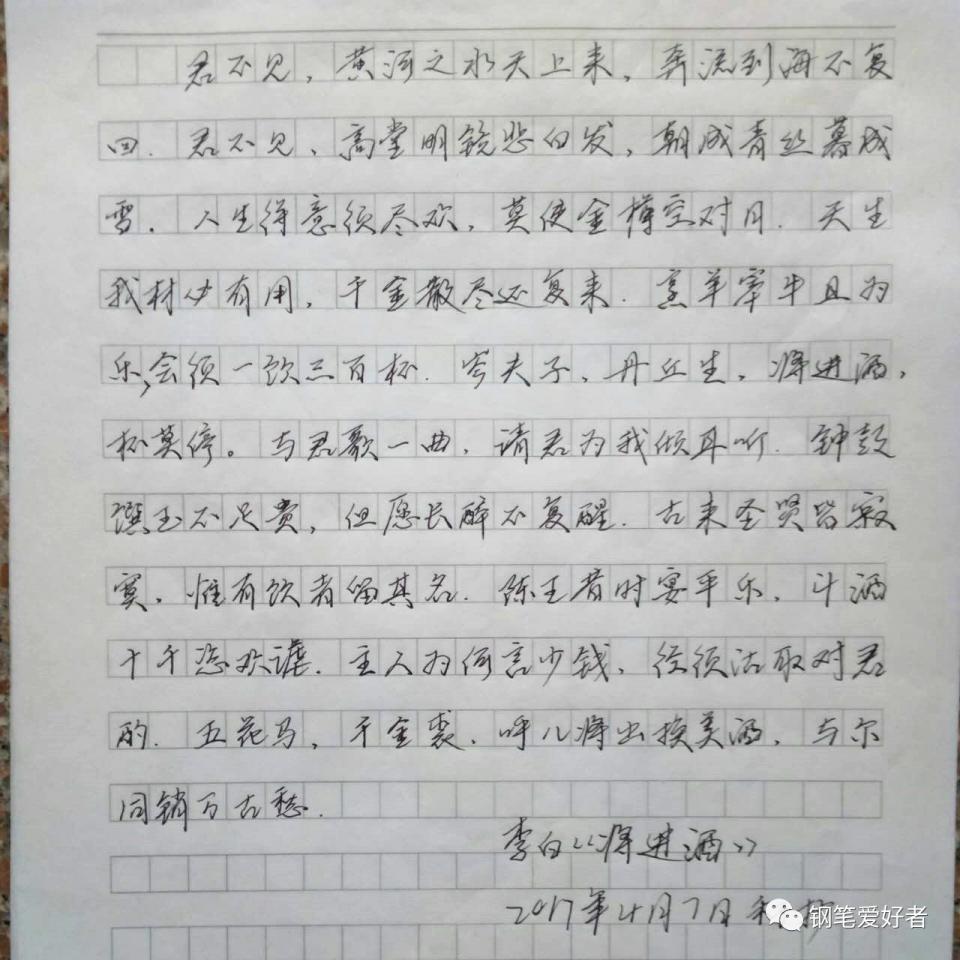 君不见，黄河之水天上来，奔流到海不复
回．君不见，高堂明镜悲白发，朝成青丝暮成
雪．人生得意须尽欢，莫使金樽空对月．天生
我材必有用，千金散尽还复来．烹羊宰牛且为
乐，会须一饮三百杯．岑夫子，丹丘生，将进酒，
杯莫停。与君歌一曲，请君为我倾耳听．钟鼓
馔玉不足贵，但愿长醉不复醒．古来圣贤皆寂
寞，惟有饮者留其名．陈王昔时宴平乐，斗酒
十千恣欢谑．主人为何言少钱，径须沽取对君
酌．五花马，千金裘．呼儿将出换美酒，与尔
同销万古愁．
李白《将进酒》
2017年4月7日
钢笔爱好者